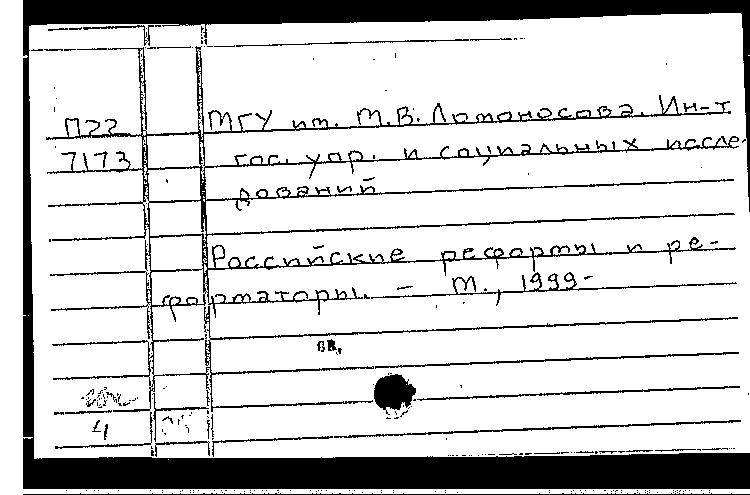 П22
7173
МГУ им. М.В. Ломоносова. Ин-т
гос. упр. и социальных иссле-
дований
Российские реформы и ре-
форматоры. – М., 1999-
4